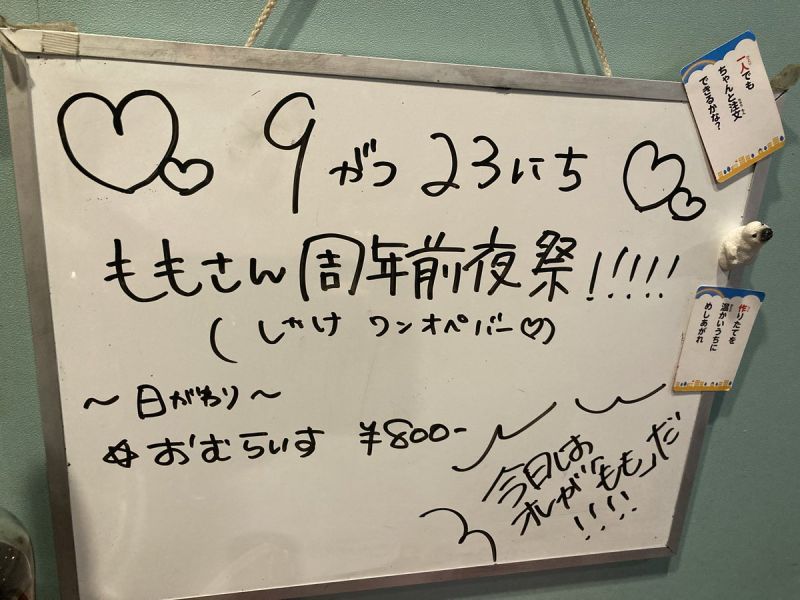 9がつ23にち
ももさん周年前夜祭!!!!!
(しゃけ ワンオペバー♡)
～日がわり～
☆おむらいす ¥800-
今日は
オレが「もも」だ
!!!!
一人でも
ちゃんと注文
できるかな?
作りたてを
温かいうちに
めしあがれ